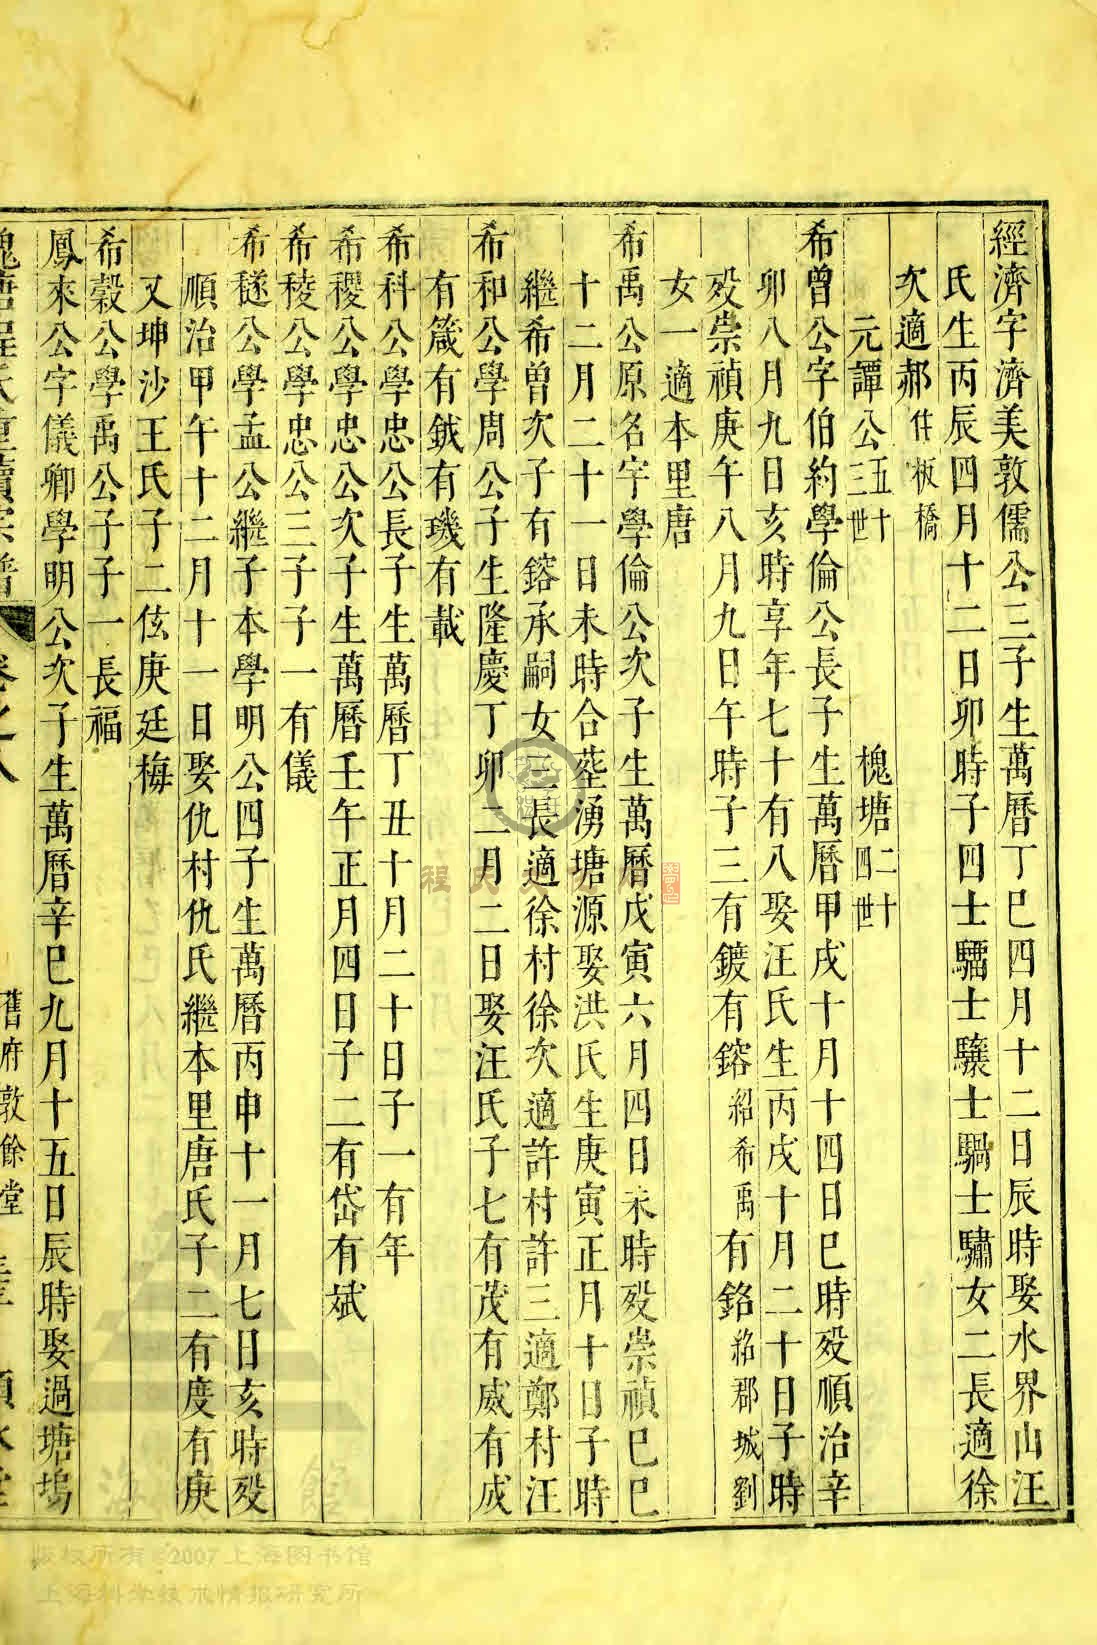 經濟字濟美敦儒公三子生萬曆丁巳四月十二日辰時娶水界山汪
氏生丙辰四月十二日卯時子四士騮士驤士騧士驌女二長適徐
次適郝作板橋
元譚公五十三世 槐塘二十四世
希曾公字伯約學倫公長子生萬曆甲戌十月十四日巳時歿順治辛
卯八月九日亥時享年七十有八娶汪氏生丙戌十月二十日子時
歿崇禎庚午八月九日午時子三有鍍有鎔紹希禹有銘紹郡城劉
女一適本里唐
希禹公原名字學倫公次子生萬曆戊寅六月四日未時歿崇禎巳巳
十二月二十一日未時合葬湧塘源娶洪氏生庚寅正月十日子時
繼希曾次子有鎔承嗣女三長適徐村徐次適許村許三適鄭村汪
希和公學周公子生隆慶丁卯二月二日娶汪氏子七有茂有威有成
有箴有鉞有璣有載
希科公學忠公長子生萬曆丁丑十月二十日子一有年
希稷公學忠公次子生萬曆壬午正月四日子二有岱有斌
希稜公學忠公三子子一有儀
希穟公學孟公繼子本學明公四子生萬曆丙申十一月七日亥時歿
順治甲午十二月十一日娶仇村仇氏繼本里唐氏子二有度有庚
又坤沙王氏子二伭庚廷梅
希穀公學禹公子子一長福
鳳來公字儀卿學明公次子生萬曆辛巳九月十五日辰時娶過塘塢
槐塘程氏重續宗譜 卷之八 舊府敦餘堂
版权所有©2007上海图书馆
上海科学技术情报研究所